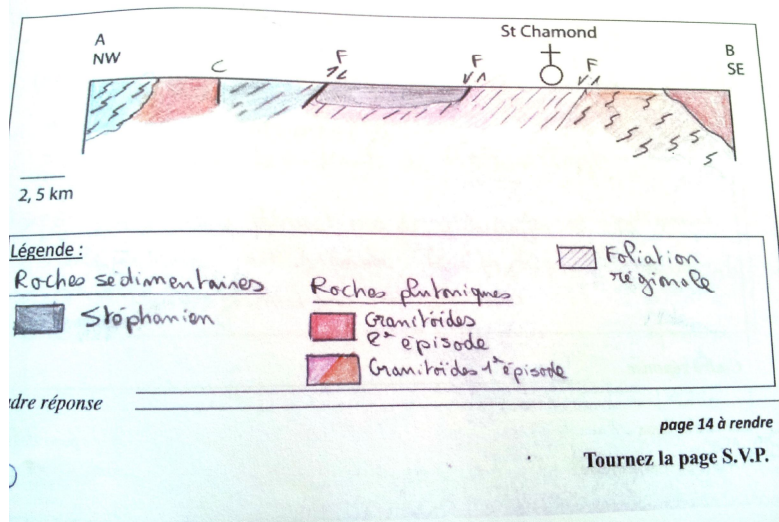 St Chamond
A
NW
C
F
F
F
B
SE
2, 5 km
Légende :
Roches sédimentaires
Stéphanien
Roches plutoniques
Granitoïdes
2e épisode
Granitoïdes 1e épisode
Foliation
régionale
dre réponse
page 14 à rendre
Tournez la page S.V.P.